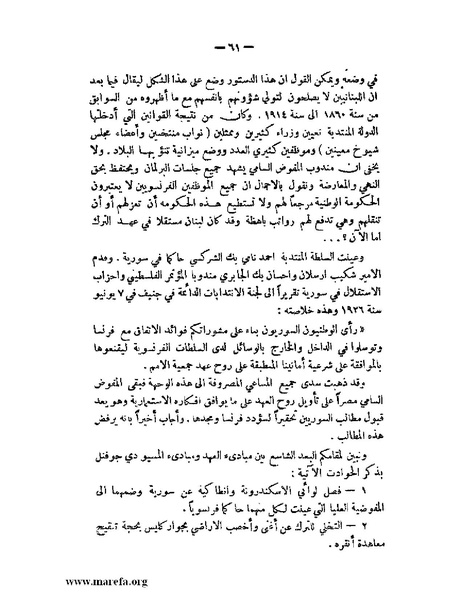 — ٦١ —
في وضعه ويمكن القول ان هذا الدستور وضع على هذا الشكل ليقال فيما بعد
ان اللبنانيين لا يصلحون لتولي شؤونهم بانفسهم مع ما أظهروه من السوابق
من سنة ١٨٦٠ الى سنة ١٩١٤ . وكان من نتيجة القوانين التي أدخلتها
الدولة المنتدبة تعيين وزراء كثيرين وممثلين ( نواب منتخبين وأعضاء مجلس
شيوخ معينين ) وموظفين كثيري العدد ووضع ميزانية تنؤ بها البلاد . ولا
يخفى ان مندوب المفوض السامي يشهد جميع جلسات البرلمان ويحتفظ بحق
النهي والمعارضة ونقول بالاجمال ان جميع الموظفين الفرنسويين لا يعتبرون
الحكومة الوطنية مرجعاً لهم ولا تستطيع هذه الحكومه أن تعزلهم أو أن
تنقلهم وهي تدفع لهم رواتب باهظة وقد كان لبنان مستقلا في عهد الترك
اما الآن ؟ . . .
وعينت السلطة المنتدبة احمد نامي بك الشركسي حاكما في سورية . وقدم
الامير شكيب ارسلان واحسان بك الجابري مندوبا المؤتمر الفلسطيني واحزاب
الاستقلال في سورية تقريراً الى لجنة الانتدابات الدائمة في جنيف في ٧ يونيو
سنة ١٩٢٦ وهذه خلاصته :
« رأى الوطنيون السوريون بناء على مشوراتكم فوائد الاتفاق مع فرنسا
وتوسلوا في الداخل والخارج بالوسائل لدى السلطات الفرنسوية ليقنعوها
بالموافقة على شرعية أمانينا المنطبقة على روح عهد جمعية الامم .
وقد ذهبت سدى جميع المساعي المصروفة الى هذه الوجهة فبقى المفوض
السامي مصراً على تأويل روح العهد على ما يوافق افكاره الاستعمارية وهو يعد
قبول مطالب السوريين تحقيراً لسؤدد فرنسا ومجدها . وأجاب أخيراً بانه يرفض
هذه المطالب .
ونبين لمقامكم البعد الشاسع بين مبادىء العهد ومبادىء المسيو دي جوفنل
بذكر الحوادث الآتية :
١ — فصل لوائي الاسكندرونة وانطاكية عن سورية وضمهما الى
المفوضية العليا التي عينت لكل منهما حاكما فرنسوياً .
٢ — التخلي للترك عن أغنى وأخصب الاراضي بجوار كليس بحجة تنقيح
معاهدة أنقره .
www.marefa.org